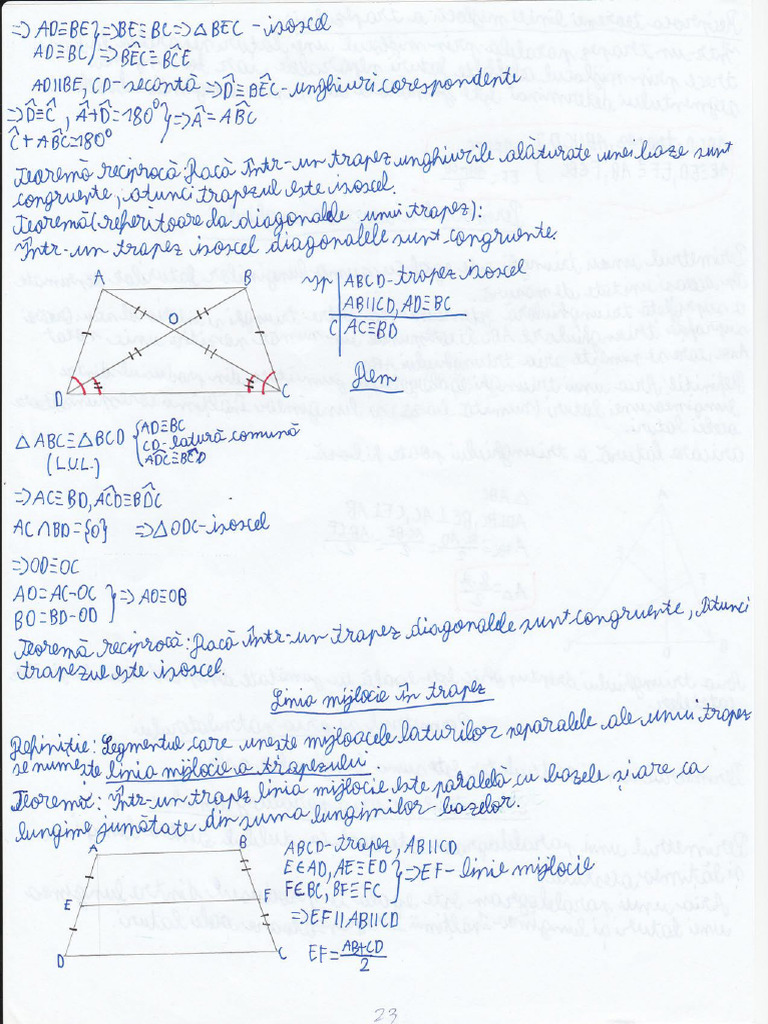 => AD≡BE } => BE≡BC => △BEC - isoscel
AD≡BC } => BÊC≡BĈE
AD||BE, CD-secantă => D̂≡BÊC - unghiuri corespondente
=> D̂≡Ĉ, Â+D̂=180° } => Â=AB̂C
Ĉ+AB̂C=180°
Teoremă reciprocă: Dacă într-un trapez unghiurile alăturate unei baze sunt
congruente, atunci trapezul este isoscel.
Teoremă (referitoare la diagonalele unui trapez):
Într-un trapez isoscel diagonalele sunt congruente.
A B
O
D C
Ip ABCD - trapez isoscel
AB||CD, AD≡BC
C AC≡BD
Dem
△ABC≡△BCD { AD≡BC
(L.U.L.) CD-latură comună
AD̂C≡BĈD
=> AC≡BD, AĈD≡BD̂C
AC∩BD={O} => △ODC-isoscel
=> OD≡OC
AO=AC-OC } => AO≡OB
BO=BD-OD
Teoremă reciprocă: Dacă într-un trapez diagonalele sunt congruente, atunci
trapezul este isoscel.
Linia mijlocie în trapez
Definiție: Segmentul care unește mijloacele laturilor neparalele ale unui trapez
se numește linia mijlocie a trapezului.
Teoremă: Într-un trapez linia mijlocie este paralelă cu bazele și are ca
lungime jumătate din suma lungimilor bazelor.
A B
E F
D C
ABCD-trapez, AB||CD
E∈AD, AE≡ED } => EF - linie mijlocie
F∈BC, BF≡FC
=> EF||AB||CD
EF=AB+CD/2
23